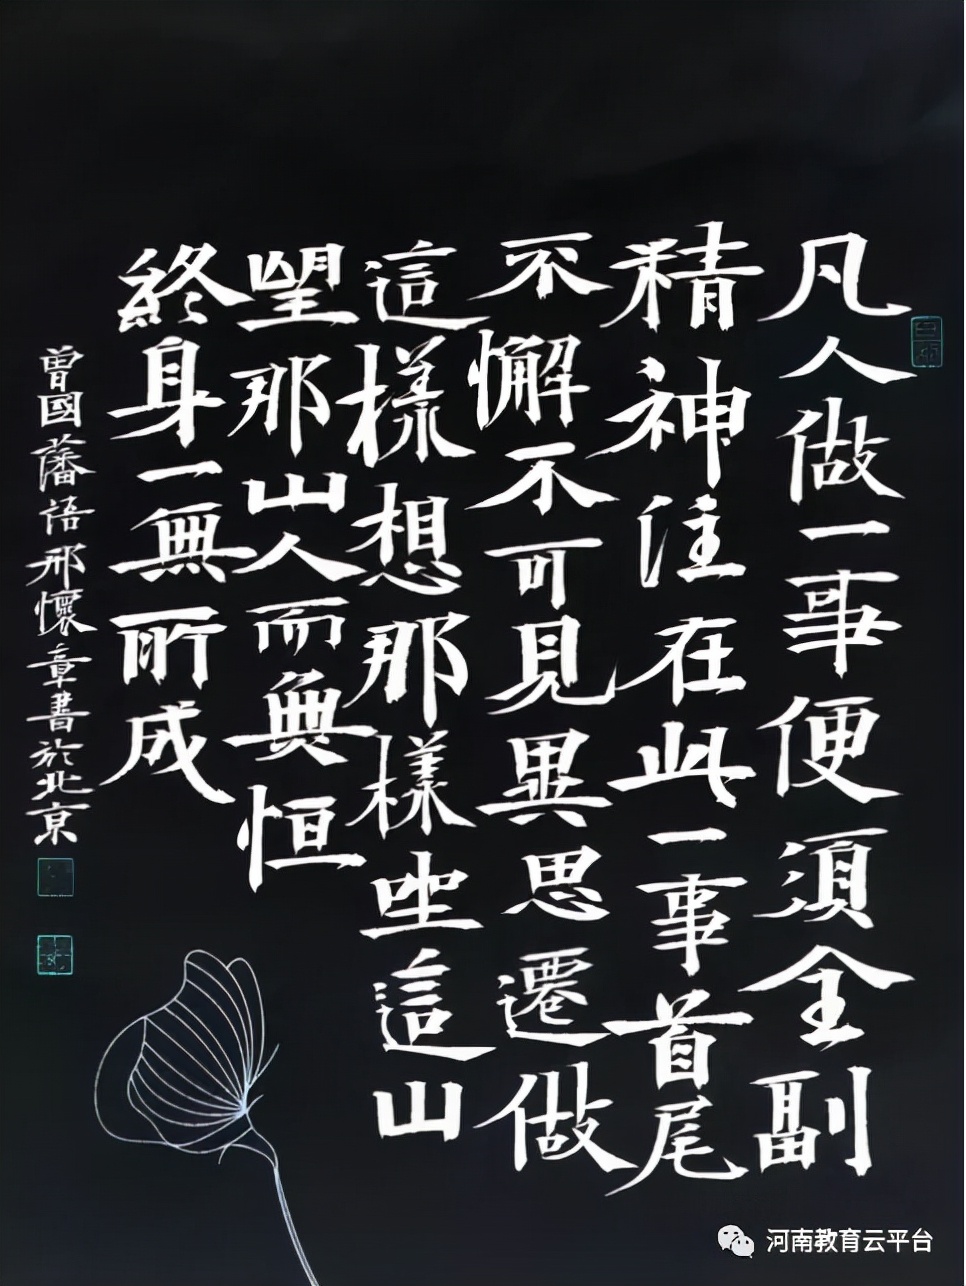 凡人做一事便須全副
精神注在此一事首尾
不懈不可見異思遷做
這樣想那樣坐這山
望那山人而無恒
終身一無所成
曾國藩語邢懷章書於北京
河南教育云平台